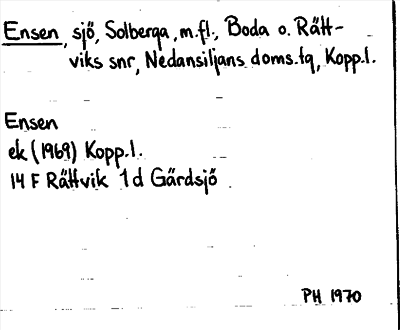 Ensen, sjö, Solberga, m.fl., Boda o. Rätt-
viks snr, Nedansiljans doms.tq, Kopp.l.
Ensen
ek (1969) Kopp.l.
14 F Rättvik 1d Gärdsjö
PH 1970